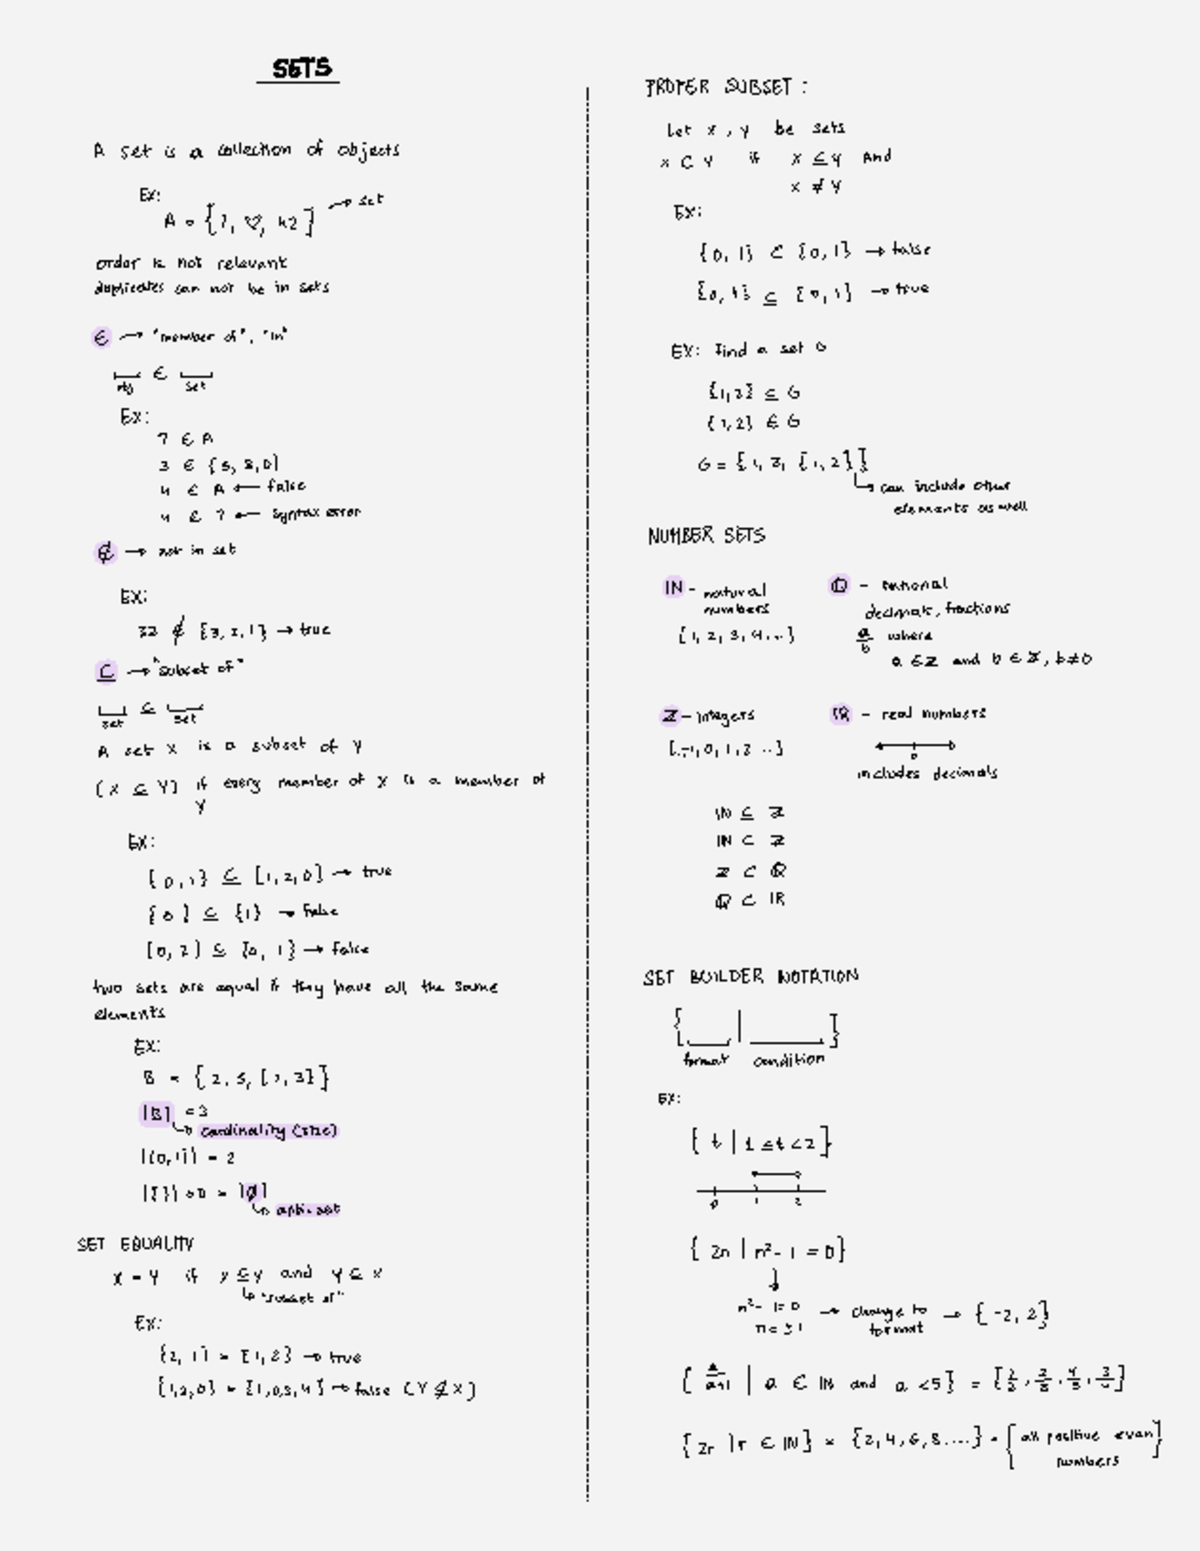 SETS
A set is a collection of objects
Ex:
A = {7, ♡, 42} → set
order is not relevant
duplicates can not be in sets
∈ → "member of", "in"
obj ∈ set
Ex:
7 ∈ A
3 ∈ {5, 3, 0}
4 ∈ A ← false
4 ∈ 7 ← syntax error
∉ → not in set
EX:
32 ∉ {3, 2, 1} → true
⊆ → "subset of"
set ⊆ set
A set X is a subset of Y
(X ⊆ Y) if every member of X is a member of
Y
EX:
{0, 1} ⊆ {1, 2, 0} → true
{0} ⊆ {1} → false
{0, 2} ⊆ {0, 1} → false
two sets are equal if they have all the same
elements
EX:
B = {2, 5, {2, 3}}
|B| = 3
↳ cardinality (size)
|{0, 1}| = 2
|{}| = 0 = |∅|
SET EQUALITY
X = Y if X ⊆ Y and Y ⊆ X
↳ "subset of"
EX:
{2, 1} = {1, 2} → true
{1, 2, 0} = {1, 0, 3, 4} → false (Y ⊈ X)
PROPER SUBSET :
Let X, Y be sets
X ⊂ Y if X ⊆ Y And
X ≠ Y
EX:
{0, 1} ⊂ {0, 1} → false
{0, 1} ⊆ {0, 1} → true
EX: Find a set G
{1, 2} ⊆ G
{1, 2} ∈ G
G = {1, 2, {1, 2}}
↳ can include other
elements as well
NUMBER SETS
ℕ - natural
numbers
{1, 2, 3, 4...}
ℚ - rational
decimals, fractions
a/b where
a ∈ ℤ and b ∈ ℤ, b≠0
ℤ - integers
{..-1, 0, 1, 2 ..}
ℝ - real numbers
0
includes decimals
ℕ ⊆ ℤ
ℕ ⊂ ℤ
ℤ ⊂ ℚ
ℚ ⊂ ℝ
SET BUILDER NOTATION
{ | }
format condition
EX:
{ t | 1 ≤ t < 2 }
0 1 2
{ 2n | n² - 1 = 0 }
↓
n² - 1 = 0 → change to → {-2, 2}
n = ±1 format
{ a/a+1 | a ∈ ℕ and a < 5 } = {1/2, 2/3, 4/5, 3/4}
{ 2r | r ∈ ℕ } = {2, 4, 6, 8 ....} = {all positive even
numbers}